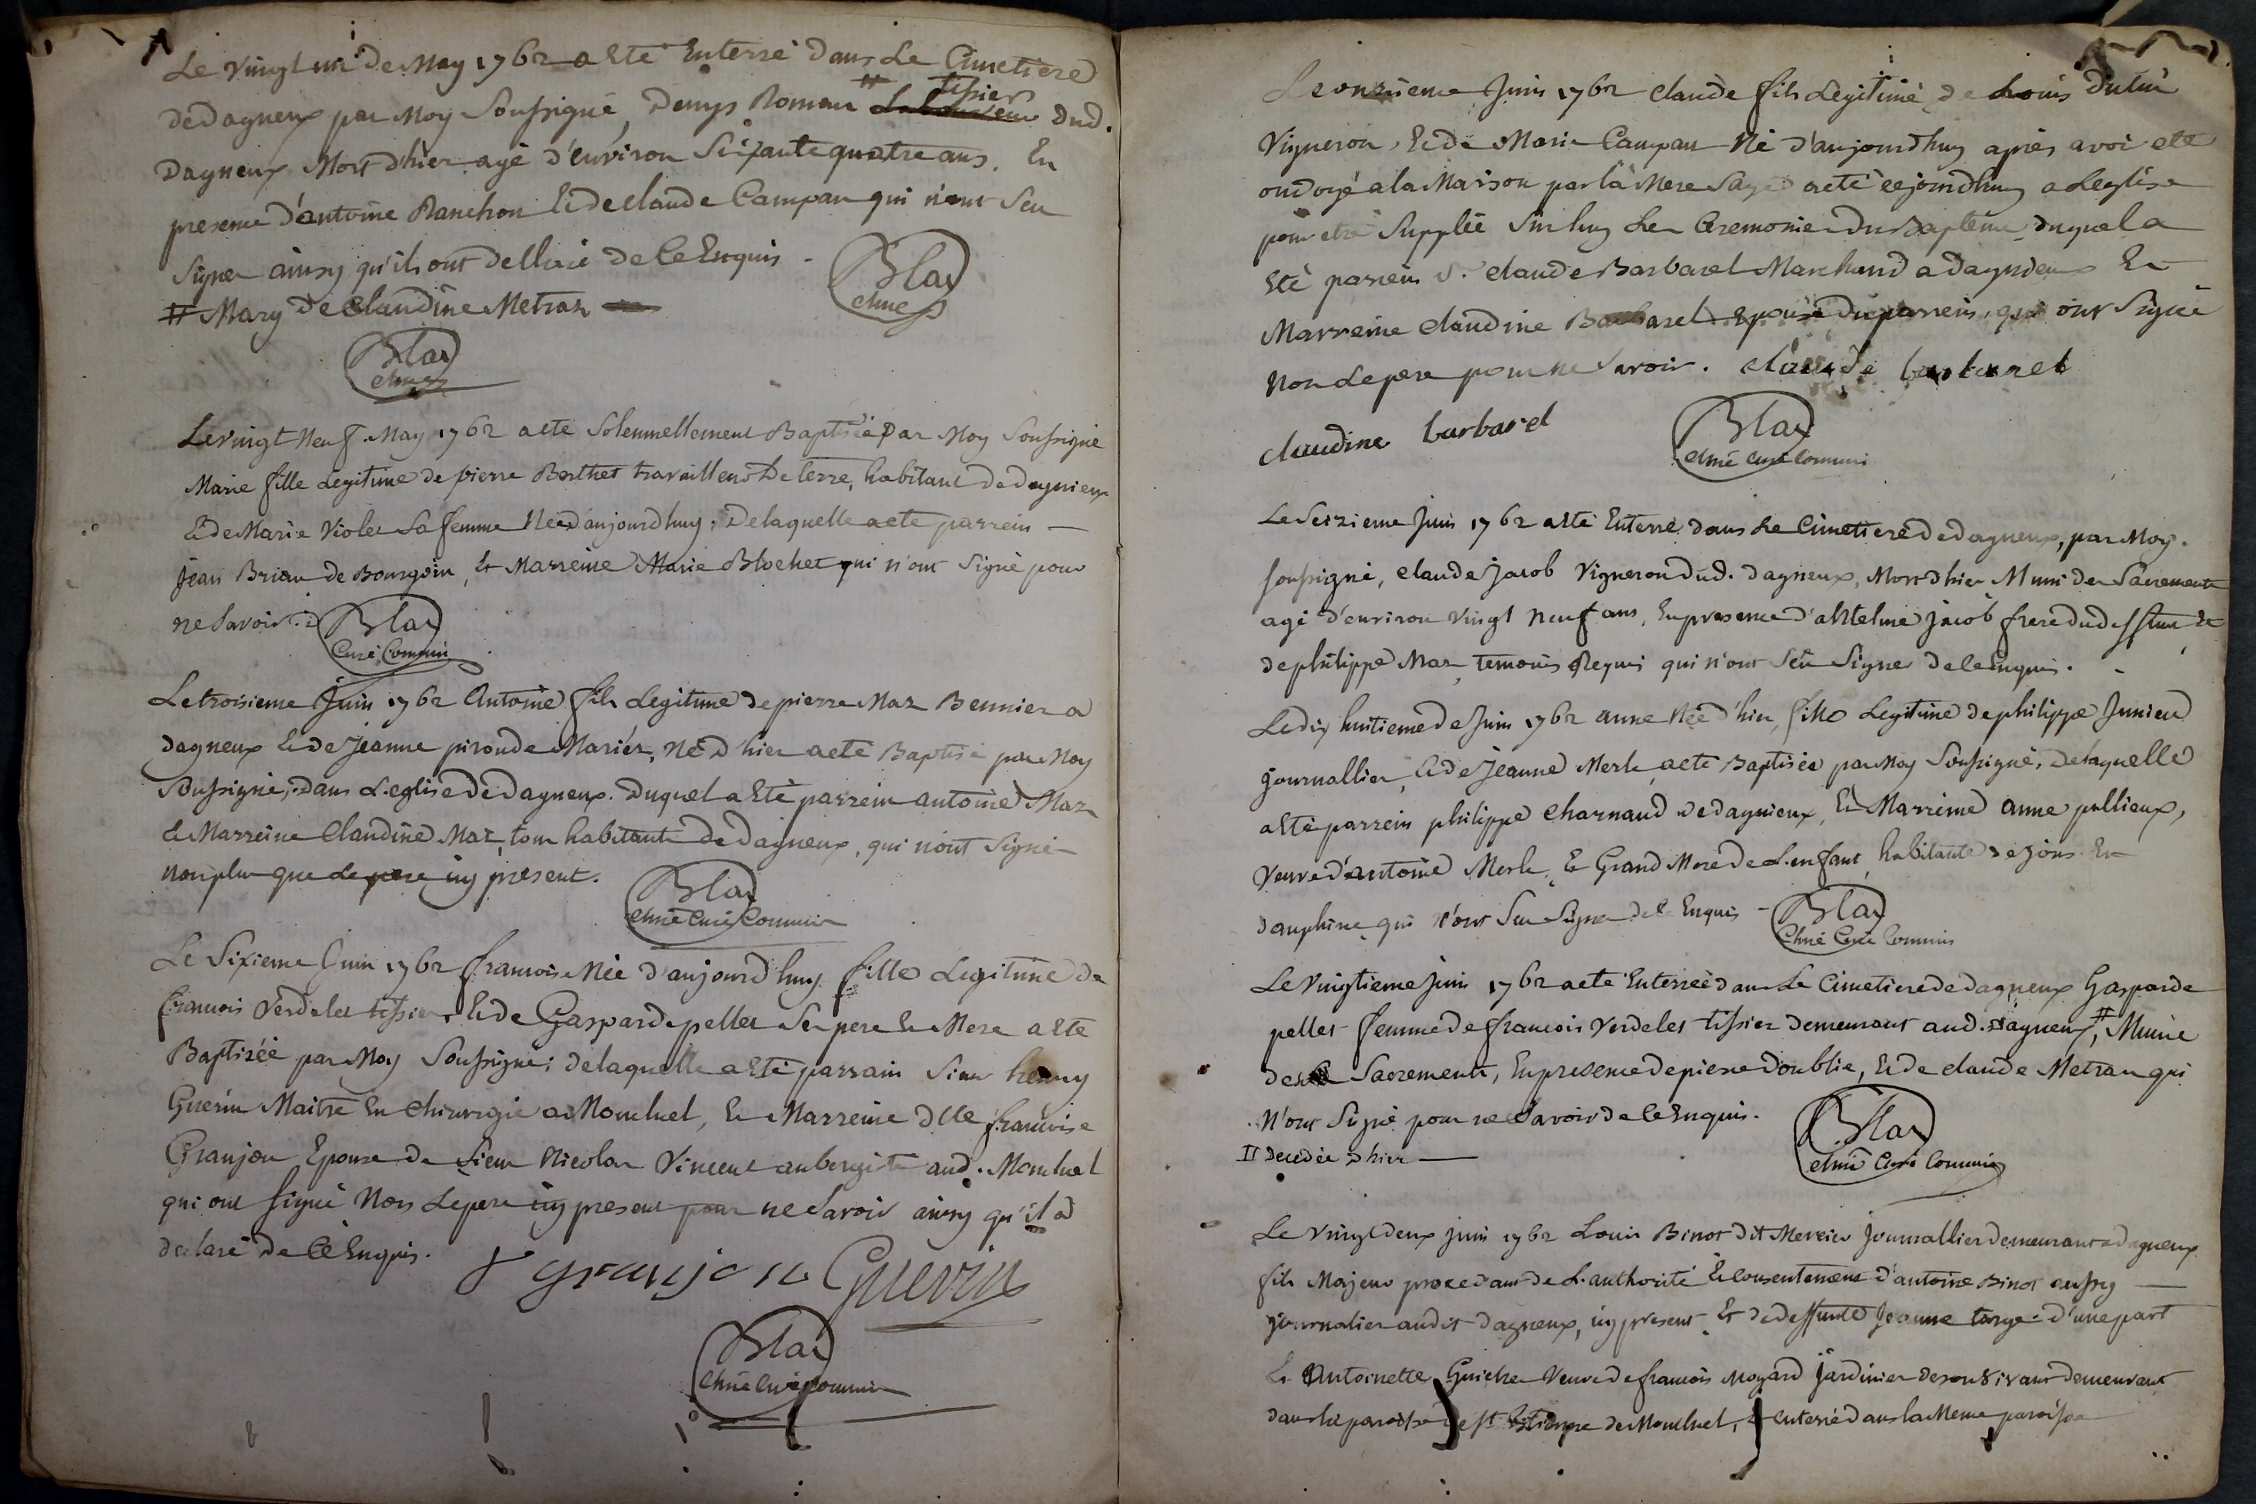 Le vingt un de May 1762 a Eté Enterré dans Le Cimetiere
de dagneux par Moy Soussigné, Denys Roman # tissier dud.
dagneux Mort d'hier agé d'environ Soixante quatre ans. En
presence d'antoine Planchon Et de Claude Campan qui n'ont Seu
Signer ainsy qu'ils ont de Ce Enquis -
# Mary de Claudine Metras
Blax
Blax
Le vingt Neuf May 1762 a eté Solemnellement Baptisée par Moy Soussigné
Marie fille Legitime de pierre Berthet travailleur De terre, habitant de dagnieux
Et de Marie Violet Sa femme Née d'aujourdhuy, De laquelle a eté parrein
Jean Brian de Bourgoin, Et Marreine Marie Blochet qui n'ont Signé pour
ne Savoir.
Blax
Curé Commis
Le troisieme Juin 1762 Antoine fils Legitime de pierre Maz a
dagneux Et de Jeanne Mariés, Né d'hier a eté Baptisé par Moy
Soussigné, dans L'eglise de Dagneux. Duquel a Eté parrein antoine Maz
Et Marreine Claudine Maz, tous habitants de Dagneux, qui n'ont Signé
non plus que Le pere icy present.
Blax
Curé Commis
Le Sixieme Juin 1762 francoise Née d'aujourdhuy fille Legitime de
francois Verdelet tissier, Et de Gasparde pellet Ses pere Et Mere a Eté
Baptisée par Moy Soussigné: de laquelle a Eté parrain Sieur henry
Guerin Maitre En Chirurgie a Montluel, Et Marreine dlle francoise
Granjon Epouse de Sieur Nicolas Vincent aubergiste aud. Montluel
qui ont Signé Non Le pere icy present pour ne Savoir ainsy qu'il a
declaré de Ce Enquis.
f granjon Guerin
Blax
Curé Commis
Le onzieme Juin 1762 Claude fils Legitime de Louis
Vigneron, Et de Marie Campan Né d'aujourdhuy après avoir eté
ondoyé a la Maison par la Mere Sage a eté cejourdhuy a L'eglise
pour etre Supplée Sur luy Les Ceremonies du Baptême, duquel a
Eté parrein Sr. Claude Barbaret Marchand a Dagnieux Et
Marreine Claudine Barbaret Epouse du parrein, qui ont Signé
Non Le pere pour ne Savoir. Claude barbaret
claudine barbaret
Blax
Curé Commis
Le Seizieme Juin 1762 a Eté Enterré dans Le Cimetiere de dagneux, par Moy
Soussigné, Claude Jacob Vigneron dud. Dagneux, Mort d'hier Muni des Sacrements
agé d'environ vingt Neuf ans, En presence d'Anthelme Jacob frere dud deffunt Et
de philippe Maz, temoins Requis qui n'ont Seu Signer de ce Enquis.
Le dix huitieme de Juin 1762 anne Née d'hier, fille Legitime de philippe Junien
Journallier, Et de Jeanne Merle a eté Baptisée par Moy Soussigné, De laquelle
a Eté parrein philippe Charnaud de dagnieux, Et Marreine anne pullieux,
Veuve d'antoine Merle, Et Grand Mere de L'enfant, habitante En
dauphine qui n'ont Seu Signer de Ce Enquis
Blax
Curé Commis
Le vingtieme Juin 1762 a eté Enterrée dans Le Cimetiere de dagneux Gasparde
pellet femme de francois Verdelet tissier demeurant aud. Dagneux, # Munie
des Sacrements, En presence de pierre Doublie, Et de Claude Metras qui
N'ont Signé pour ne Savoir de Ce Enquis.
# Decedée d'hier
Blax
Curé Commis
Le vingt deux Juin 1762 Louis Binot dit Mercier Journallier demeurant a dagneux
fils Majeur procedant de L'authorité Et Consentement d'antoine Binot aussy
journalier audit dagneux, icy present Et de deffunte Jeanne d'une part
Et Antoinette Guichet Veuve de francois Moyard Jardinier de son Vivant demeurant
dans La paroisse de St Etienne de Montluel, Et enterré dans la Meme paroisse